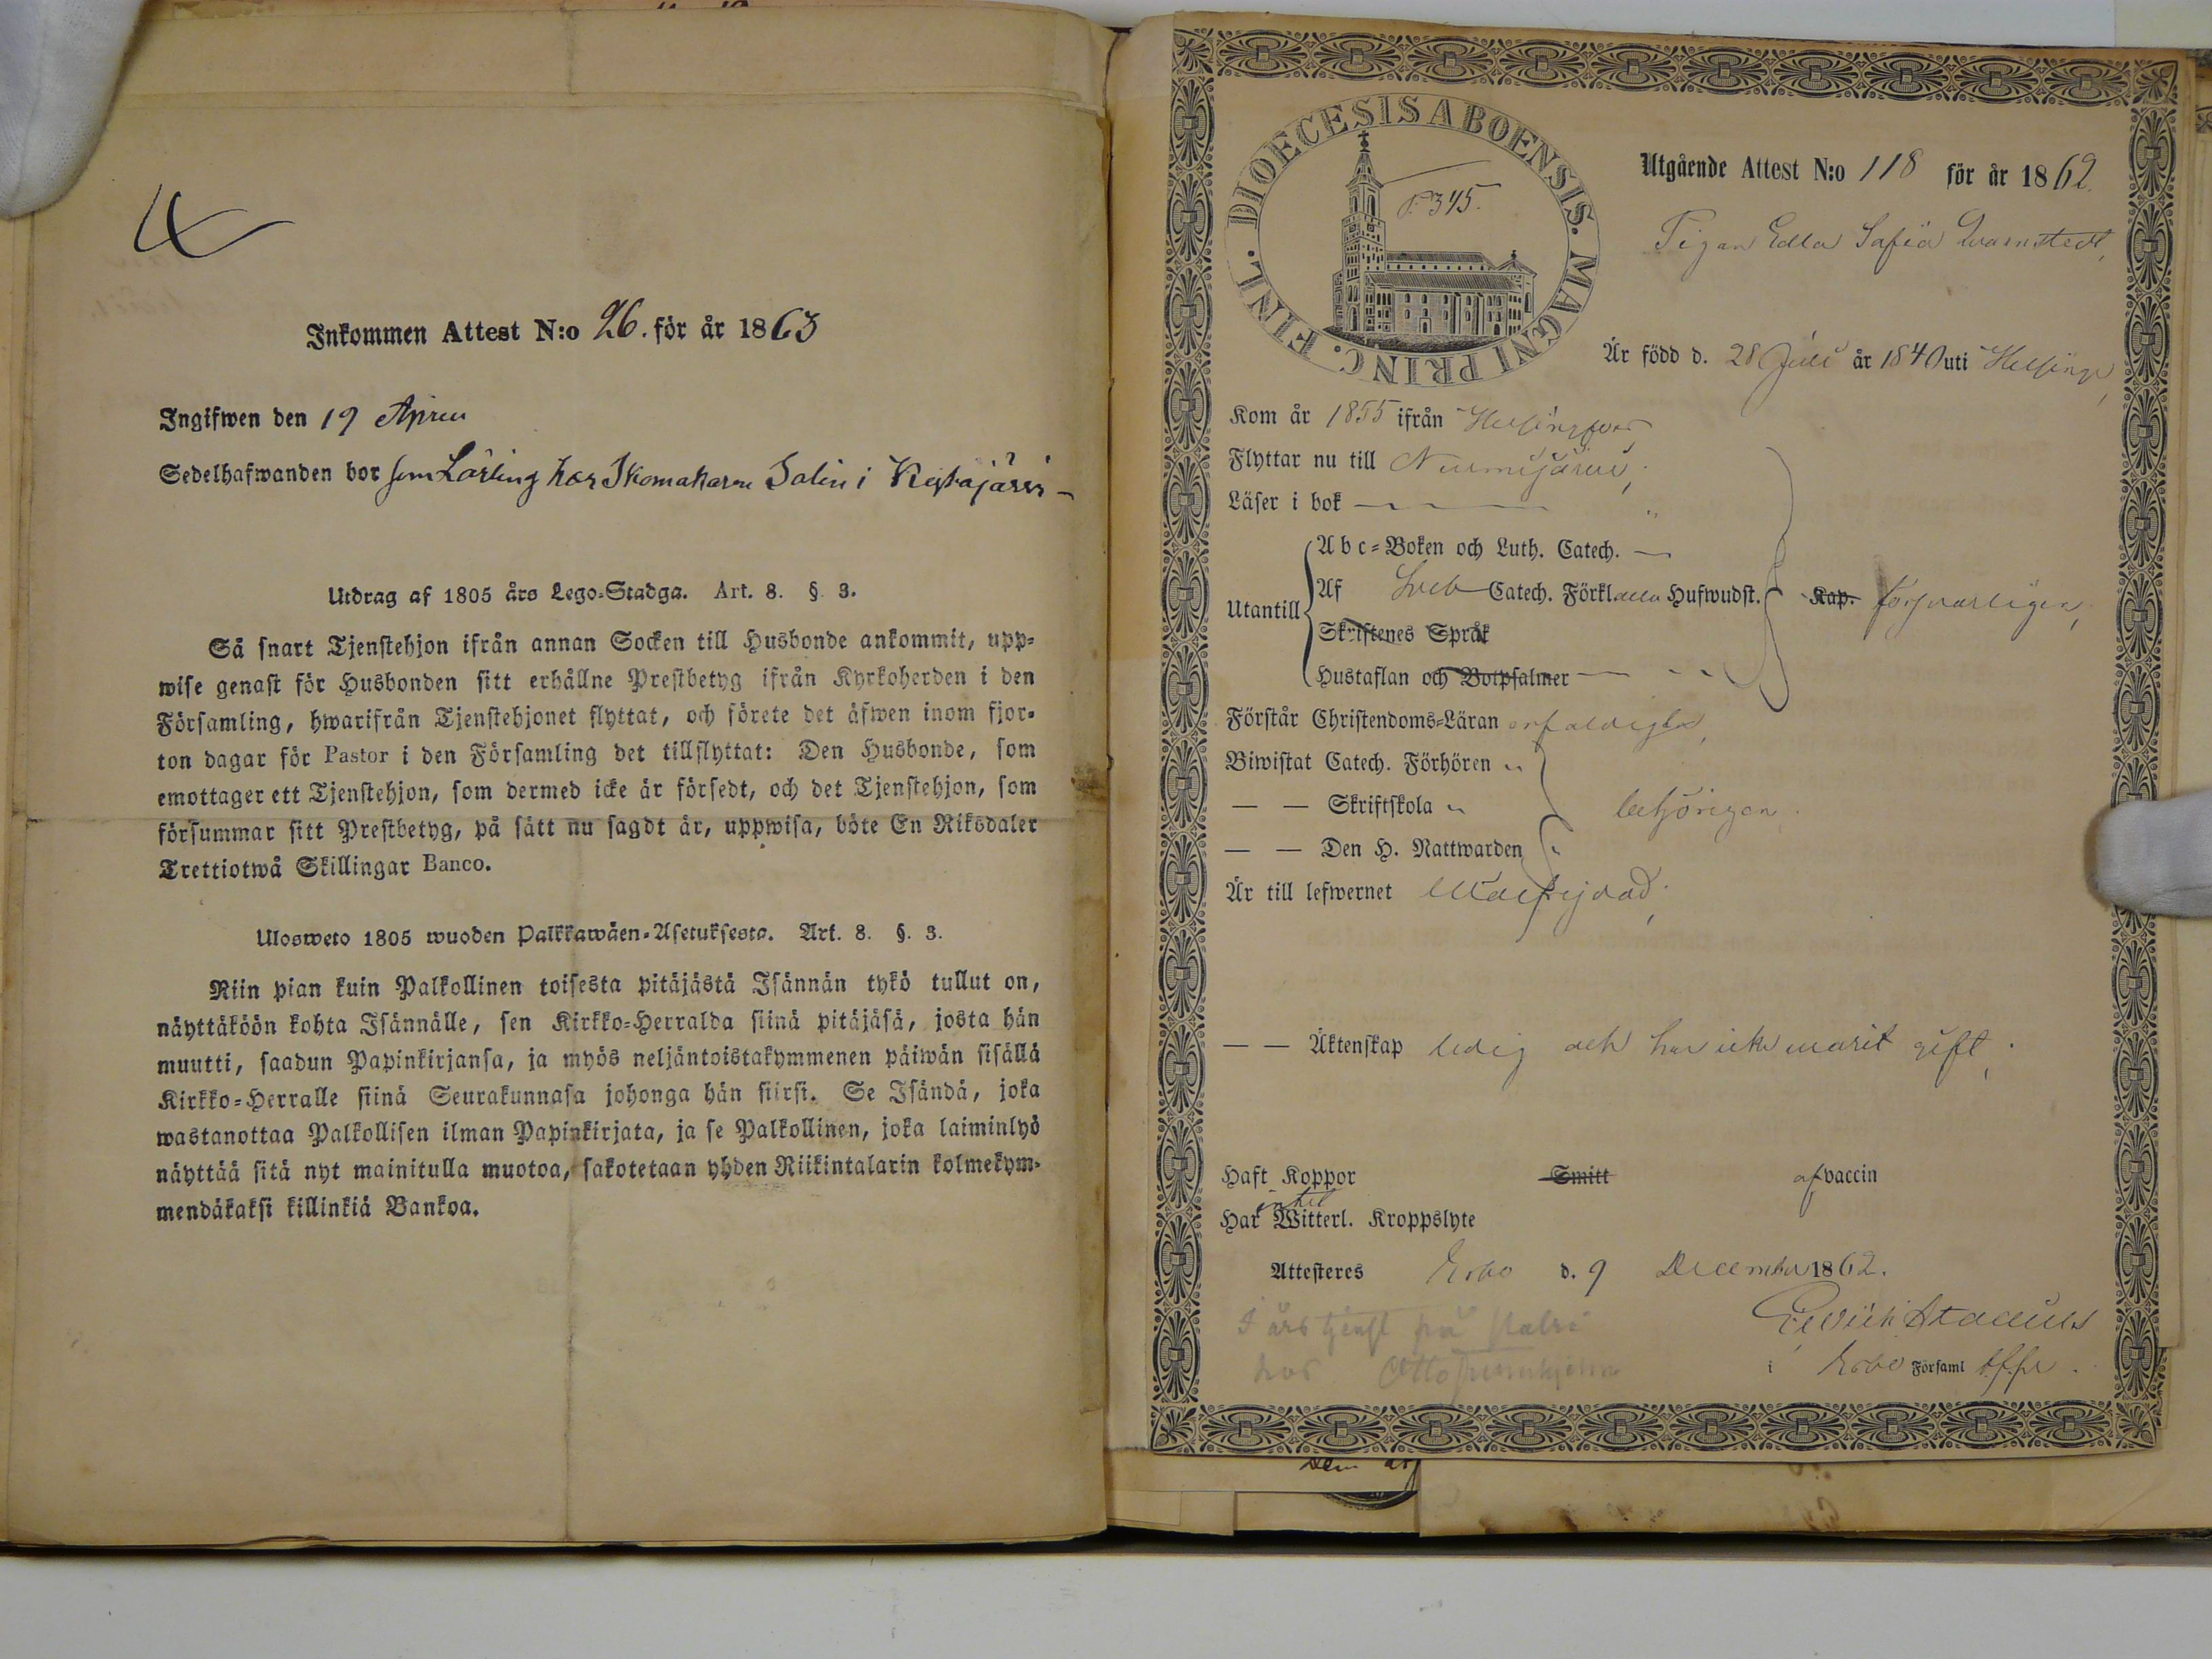 Inkommen Attest N:o 26. för år 1863
Ingifwen den 19 April
Sedelhafwanden bor som Lärling hos Skomakaren Salin i
Utdrag af 1805 års Lego-Stadga. Art. 8. §. 3.
Så snart Tjenstehjon ifrån annan Socken till Husbonde ankommit, upp-
wise genast för Husbonden sitt erhållne Prestbetyg ifrån Kyrkoherden i den
Församling, hwarifrån Tjenstehjonet flyttat, och förete det äfwen inom fjor-
ton dagar för Pastor i den Församling det tillflyttat: Den Husbonde, som
emottager ett Tjenstehjon, som dermed icke är försedt, och det Tjenstehjon, som
försummar sitt Prestbetyg, på sätt nu sagdt är, uppwisa, böte En Riksdaler
Trettiotwå Skillingar Banco.
Ulosweto 1805 wuoden Palkkawäen-Asetuksesta. Art. 8. §. 3.
Niin pian kuin Palkollinen toisesta pitäjästä Isännän tykö tullut on,
näyttäköön kohta Isännälle, sen Kirkko-Herralda siinä pitäjäsä, josta hän
muutti, saadun Papinkirjansa, ja myös neljäntoistakymmenen päiwän sisällä
Kirkko-Herralle siinä Seurakunnasa johonga hän siirsi. Se Isändä, joka
wastanottaa Palkollisen ilman Papinkirjata, ja se Palkollinen, joka laiminlyö
näyttää sitä nyt mainitulla muotoa, sakotetaan yhden Riikintalarin kolmekym-
mendäkaksi killinkiä Bankoa.
DIOECESIS ABOENSIS. MAGNI PRINC. FINL.
P. 345.
Utgående Attest N:o 118 för år 1862.
Pigan Edla Sofia Qvarnstedt,
Är född d. 28 Juli år 1840 uti Helsinge,
Kom år 1855 ifrån Helsingfors,
Flyttar nu till Nurmijärvi,
Läser i bok
Abc-Boken och Luth. Catech.
Utantill Af Sveb Catech. Förkl alla Hufwudst. Kap. försvarligen,
Skriftenes Språk
Hustaflan och Botpsalmer
Förstår Christendoms-Läran enfaldigt,
Biwistat Catech. Förhören
— — Skriftskola behörigen.
— — Den H. Nattwarden
Är till lefwernet
— — Äktenskap ledig och har icke varit gift,
Haft Koppor Smitt af vaccin
intet
Har Witterl. Kroppslyte
Attesteres Esbo d. 9 December 1862.
I års tjenst på
hos Otto
i Esbo Församl